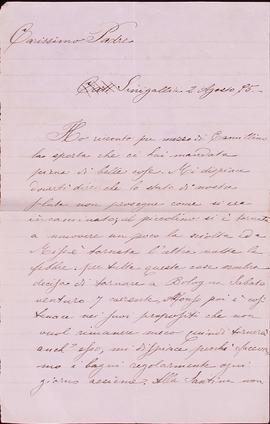 Carissimo Padre
Senigallia 2 Agosto 95.
Ho ricevuto per mezzo di Camillino
la sporta che ci hai mandata
piena di belle cose. Mi dispiace
doverti dire che lo stato di nostra
non prosegue come si era
incaminato, al piccolino si è tornata
a muovere un poco la sciolta ed a
è tornata l'altra notte la
febbre, per tutte queste cose sembra
decisa di tornare a Bologna Sabato
venturo 7 corrente, Alfonso poi è così
tenace nei suoi propositi che non
vuol rimanere meco quindi tornerà
anch'esso, mi dispiace perchè faceva
mo i bagni regolarmente ogni
giorno assieme. Alla Santina non